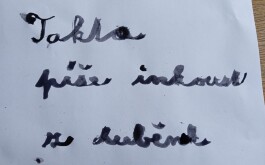 Takto
píše inkoust
z duběnk